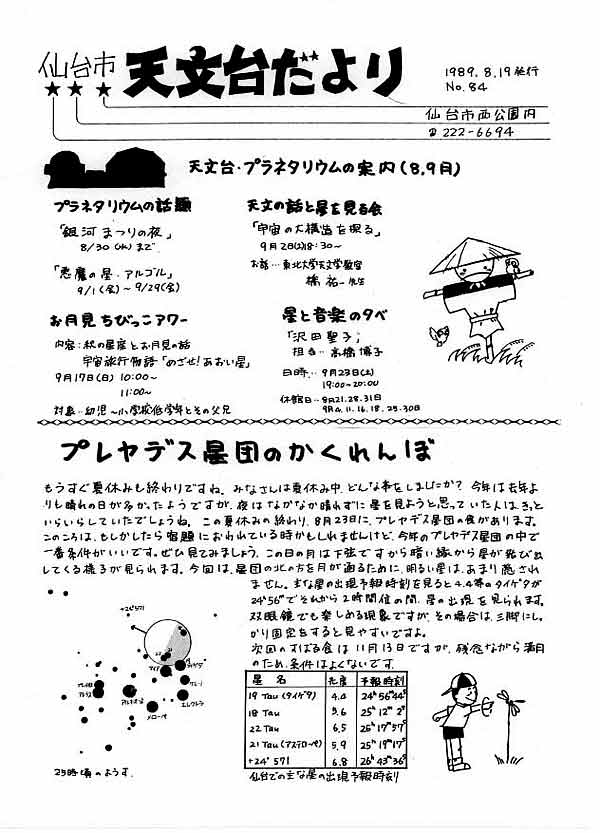 仙台市 天文台だより
1989.8.19発行
No.84
仙台市西公園内
☎222-6694
天文台・プラネタリウムの案内(8,9月)
プラネタリウムの話題
「銀河まつりの夜」
8/30(水)まで
「悪魔の星・アルゴル」
9/1(金)~9/29(金)
お月見ちびっこアワー
内容:秋の星座とお月見の話
宇宙旅行物語「めざせ!あおい星」
9月17日(日)10:00~
11:00~
対象…幼児~小学校低学年とその父兄
天文の話と星を見る会
「宇宙の大構造を探る」
9月2日(土)18:30~
お話…東北大学天文学教室
橋 祐一先生
星と音楽の夕べ
「沢田聖子」
担当…高橋博子
日時…9月23日(土)
19:00~20:00
休館日…8月21.28.31日
9月4.11.16.18.25.30日
プレヤデス星団のかくれんぼ
もうすぐ夏休みも終わりですね。みなさんは夏休み中、どんな事をしましたか?今年は去年よ
りも晴れの日が多かったようですが、夜はなかなか晴れずに星を見ようと思っていた人はきっと
いらいらしていたでしょうね。この夏休みの終わり、8月23日に、プレヤデス星団の食があります。
このころは、もしかしたら宿題におわれている時かもしれませんけど、今年のプレヤデス星団の中で
一番条件がいいです。ぜひ見てみましょう。この日の月は下弦ですから暗い縁から星が飛び出
してくる様子が見られます。今回は、星団の北の方を月が通るために、明るい星は、あまり隠され
ません。主な星の出現予報時刻を見ると4.4等のタイゲタが
24ʰ56ᵐでそれから2時間位の間、星の出現を見られます。
双眼鏡でも楽しめる現象ですが、その場合は、三脚にしっ
かり固定をすると見やすいですよ。
次回のすばる食は11月13日ですが、残念ながら満月
のため、条件はよくないです。
+24°571
タイゲタ
ケレーノ
エレクトラ
メローペ
アルキオネ
アトラス
25時頃のようす
星 名 光度 予報時刻
19 Tau(タイゲタ) 4.4 24ʰ56ᵐ44ˢ
18 Tau 5.6 25ʰ12ᵐ2ˢ
22 Tau 6.5 26ʰ17ᵐ57ˢ
21 Tau(アステローペ) 5.9 25ʰ19ᵐ17ˢ
+24°571 6.8 26ʰ43ᵐ36ˢ
仙台での主な星の出現予報時刻